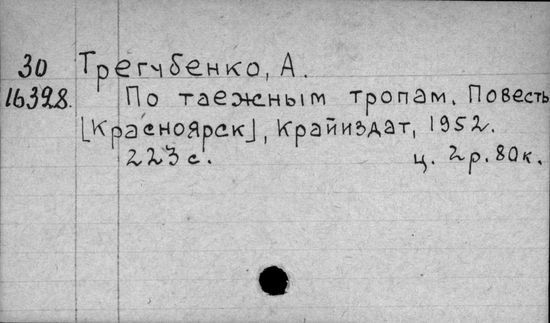 30 Трегубенко, А.
16398. По таежным тропам. Повесть
[Красноярск], Крайиздат, 1952.
223 с. ц. 2р. 80к.